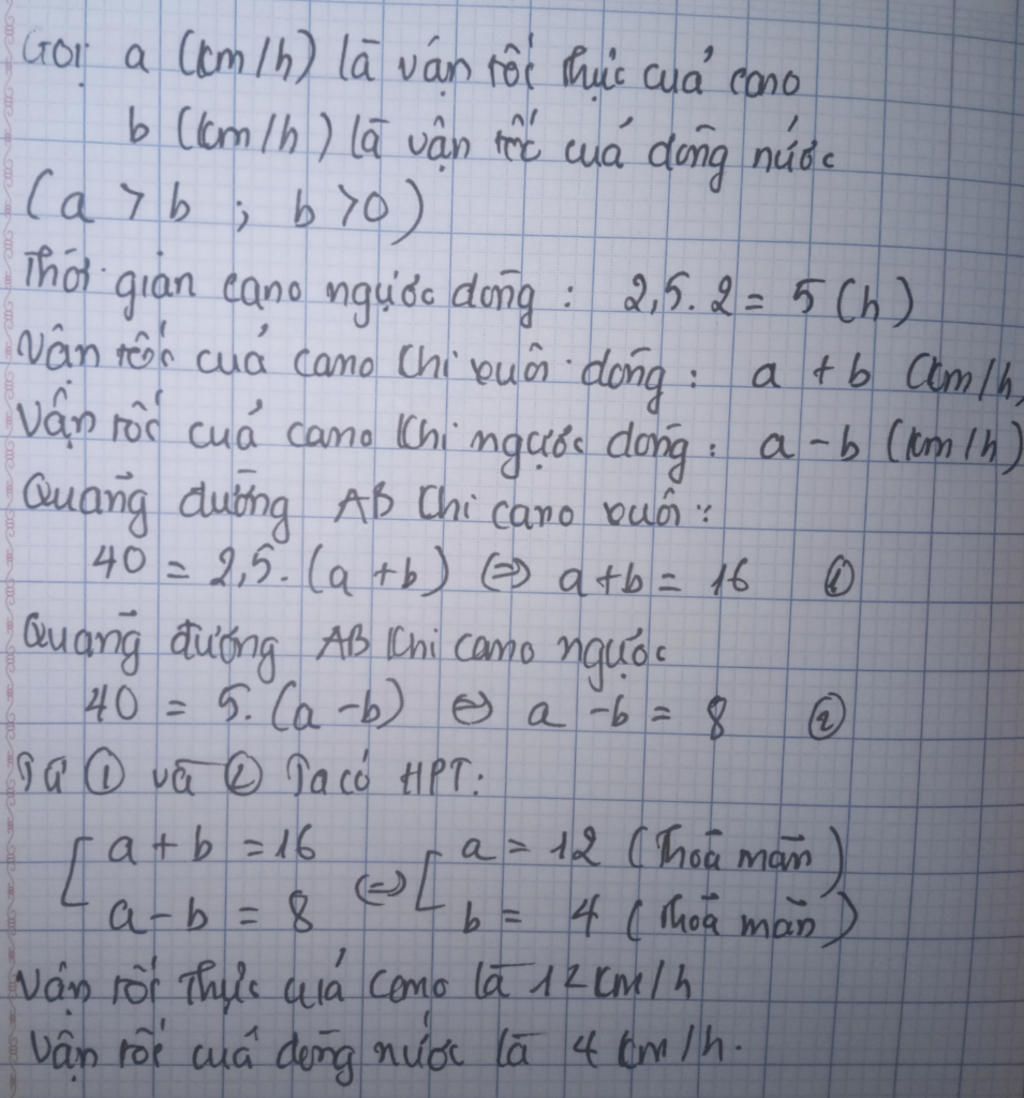 Gọi a (km/h) là vận tốc thực của cano
b (km/h) là vận tốc của dòng nước
(a > b ; b > 0)
Thời gian cano ngược dòng : 2,5. 2 = 5 (h)
Vận tốc của cano khi xuôi dòng : a + b (km/h)
Vận tốc của cano khi ngược dòng : a - b (km/h)
Quãng đường AB khi cano xuôi :
40 = 2,5. (a + b) ⇔ a + b = 16 ①
Quãng đường AB khi cano ngược
40 = 5. (a - b) ⇔ a - b = 8 ②
Từ ① và ② Ta có HPT:
[ a + b = 16 ⇔ [ a = 12 (Thoả mãn)
a - b = 8 b = 4 (Thoả mãn)
Vận tốc thực của cano là 12 km/h
Vận tốc của dòng nước là 4 km/h.